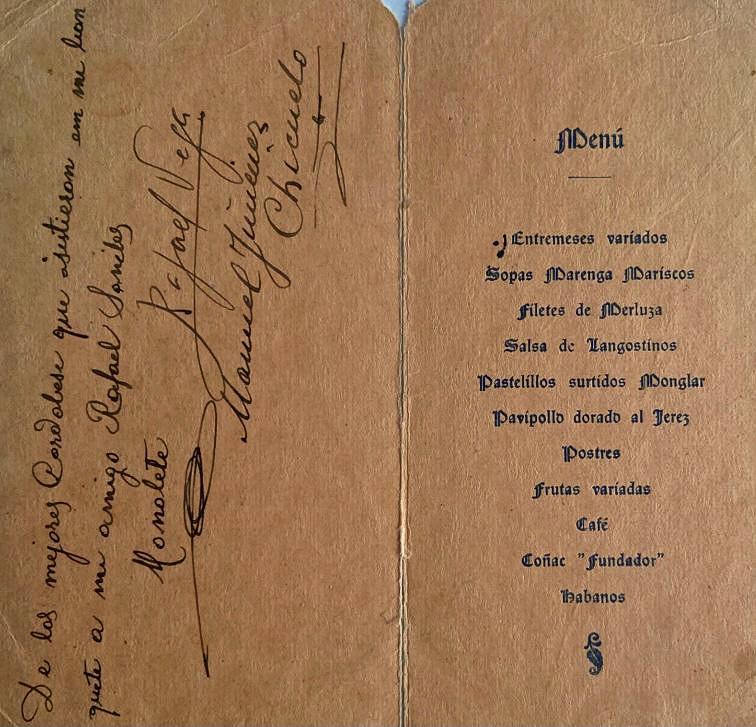 De los mejores Cordobese que asistieron em mi ban
quete a mi amigo Rafael
Manolete
Rafael Vega
Manuel Jimenez
Chicuelo
Menú
Entremeses variados
Sopas Marenga Mariscos
Filetes de Merluza
Salsa de Langostinos
Pastelillos surtidos Monglar
Pavipollo dorado al Jerez
Postres
Frutas variadas
Café
Coñac "Fundador"
Habanos